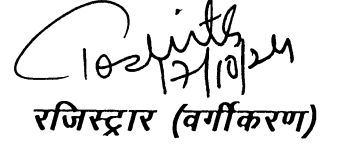 7/10/24
रजिस्ट्रार (वर्गीकरण)